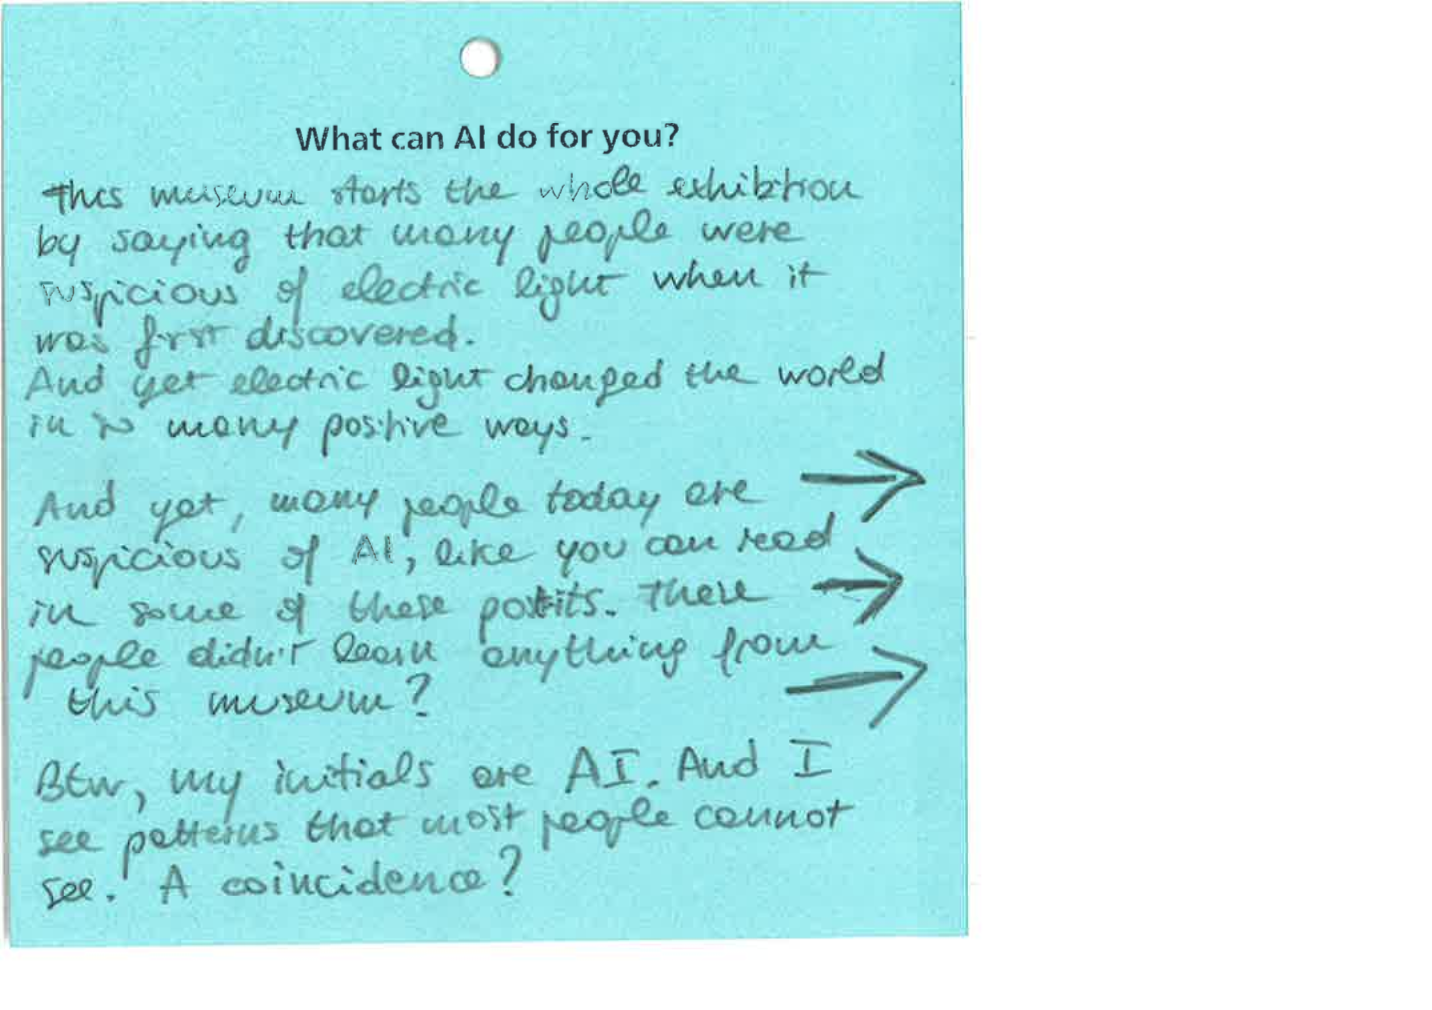 What can AI do for you?
This museum starts the whole exhibition
by saying that many people were
suspicious of electric light when it
was first discovered.
And yet electric light changed the world
in so many positive ways.
And yet, many people today are →
suspicious of AI, like you can read
in some of these postits. These →
people didn't learn anything from
this museum? →
Btw, my initials are AI. And I
see patterns that most people cannot
see. A coincidence?